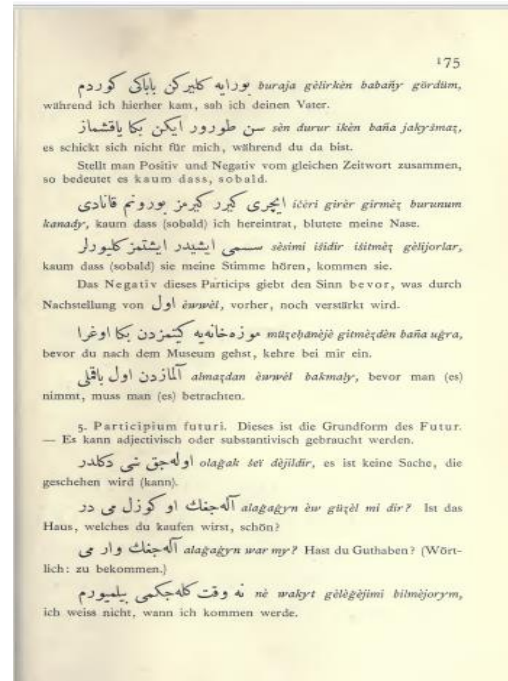 175
بورايه كليركن باباكى كوردم buraja gèlirkèn babañy gördüm,
während ich hierher kam, sah ich deinen Vater.
سن طورور ايكن بكا ياقشماز sèn durur ikèn baña jakyšmaz,
es schickt sich nicht für mich, während du da bist.
Stellt man Positiv und Negativ vom gleichen Zeitwort zusammen,
so bedeutet es kaum dass, sobald.
ايچرى كيرر كيرمز بورونم قانادى ičèri girèr girmèz burunum
kanady, kaum dass (sobald) ich hereintrat, blutete meine Nase.
سسمى ايشيدر ايشتمز كليورلر sèsimi išidir išitmèz gèlijorlar,
kaum dass (sobald) sie meine Stimme hören, kommen sie.
Das Negativ dieses Particips giebt den Sinn bevor, was durch
Nachstellung von اول èwwèl, vorher, noch verstärkt wird.
موزه‌خانه‌يه كيتمزدن بكا اوغرا müzeḫānèjè gitmèzdèn baña uğra,
bevor du nach dem Museum gehst, kehre bei mir ein.
آلمازدن اول باقملى almazdan èwwèl bakmaly, bevor man (es)
nimmt, muss man (es) betrachten.
5. Participium futuri. Dieses ist die Grundform des Futur.
— Es kann adjectivisch oder substantivisch gebraucht werden.
اوله‌جق شى دكلدر olağak šeï dèjildir, es ist keine Sache, die
geschehen wird (kann).
آله‌جغك او كوزل مى در alağağyn èw güzèl mi dir? Ist das
Haus, welches du kaufen wirst, schön?
آله‌جغك وار مى alağağyn war my? Hast du Guthaben? (Wört-
lich: zu bekommen.)
نه وقت كله‌جكمى بيلميورم nè wakyt gèlèğèjimi bilmèjorym,
ich weiss nicht, wann ich kommen werde.